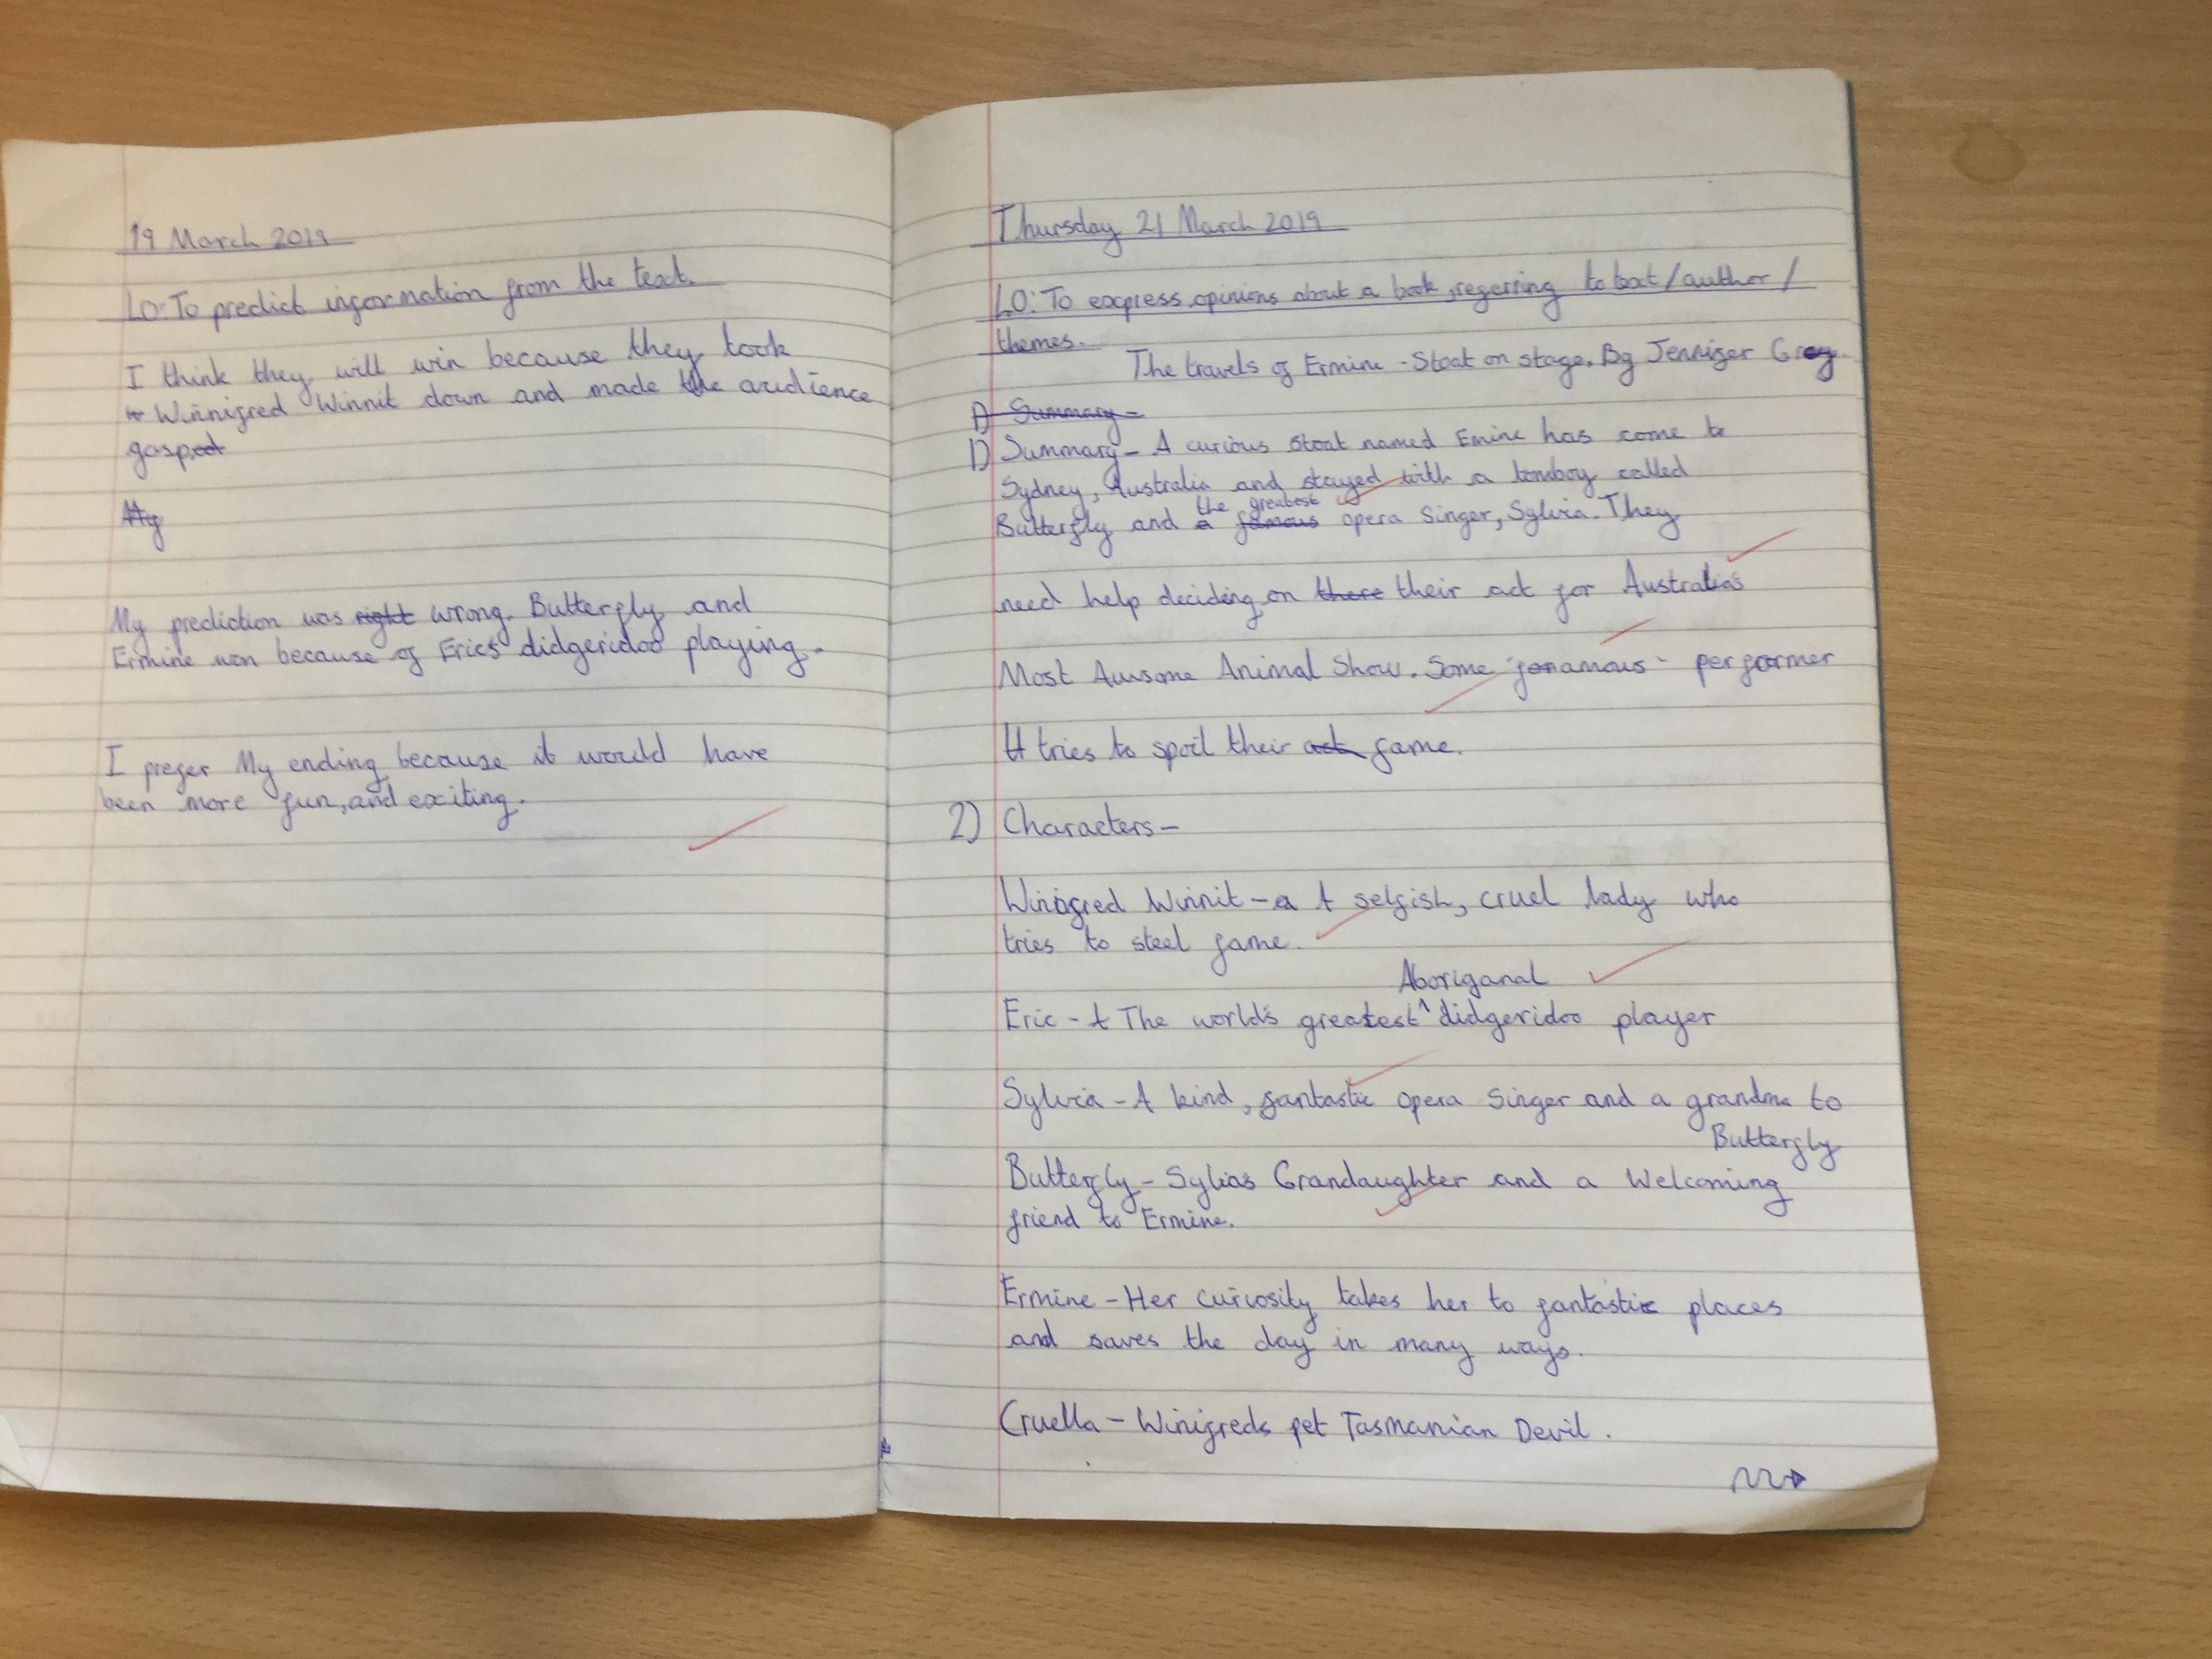 19 March 2019
LO: To predict information from the text.
I think they will win because they took
Winnifred Winnit down and made the audience
gasped
My
My prediction was right wrong. Butterfly and
Ermine won because of Eric's didgeridoo playing.
I prefer My ending because it would have
been more fun, and exciting.
Thursday 21 March 2019
LO: To express opinions about a book, referring to text/author/
themes.
The travels of Ermine - Stoat on stage. By Jennifer Gray
1) Summary -
1) Summary - A curious stoat named Emine has come to
Sydney, Australia and stayed with a tomboy called
the greatest
Butterfly and a famous opera singer, Sylvia. They
need help deciding on there their act for Australia's
Most Awsome Animal Show. Some performer
tries to spoil their act fame.
2) Characters -
Winifred Winnit - a A selfish, cruel lady who
tries to steel fame.
Aboriganal
Eric - A The world's greatest ^ didgeridoo player
Sylvia - A kind, fantastic opera singer and a grandma to
Butterfly
Butterfly - Sylias Grandaughter and a Welcoming
friend to Ermine.
Ermine - Her curiosity takes her to fantastic places
and saves the day in many ways.
Cruella - Winifreds pet Tasmanian Devil.